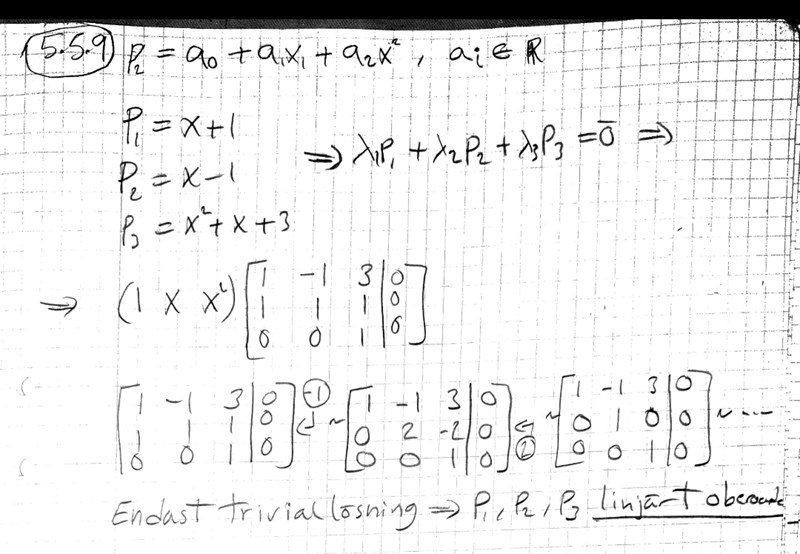 5.5.9 P₂ = a₀ + a₁x₁ + a₂x², aᵢ ∈ ℝ
P₁ = x+1
P₂ = x-1
P₃ = x²+x+3
⇒ λ₁P₁ + λ₂P₂ + λ₃P₃ = 0̄ ⇒
⇒ (1 x x²) [1 -1 3 | 0
1 1 1 | 0
0 0 1 | 0]
[1 -1 3 | 0
1 1 1 | 0
0 0 1 | 0] (-1) ~ [1 -1 3 | 0
0 2 -2 | 0
0 0 1 | 0] (2) ~ [1 -1 3 | 0
0 1 0 | 0
0 0 1 | 0] ~ ...
Endast trivial lösning ⇒ P₁, P₂, P₃ linjärt oberoende